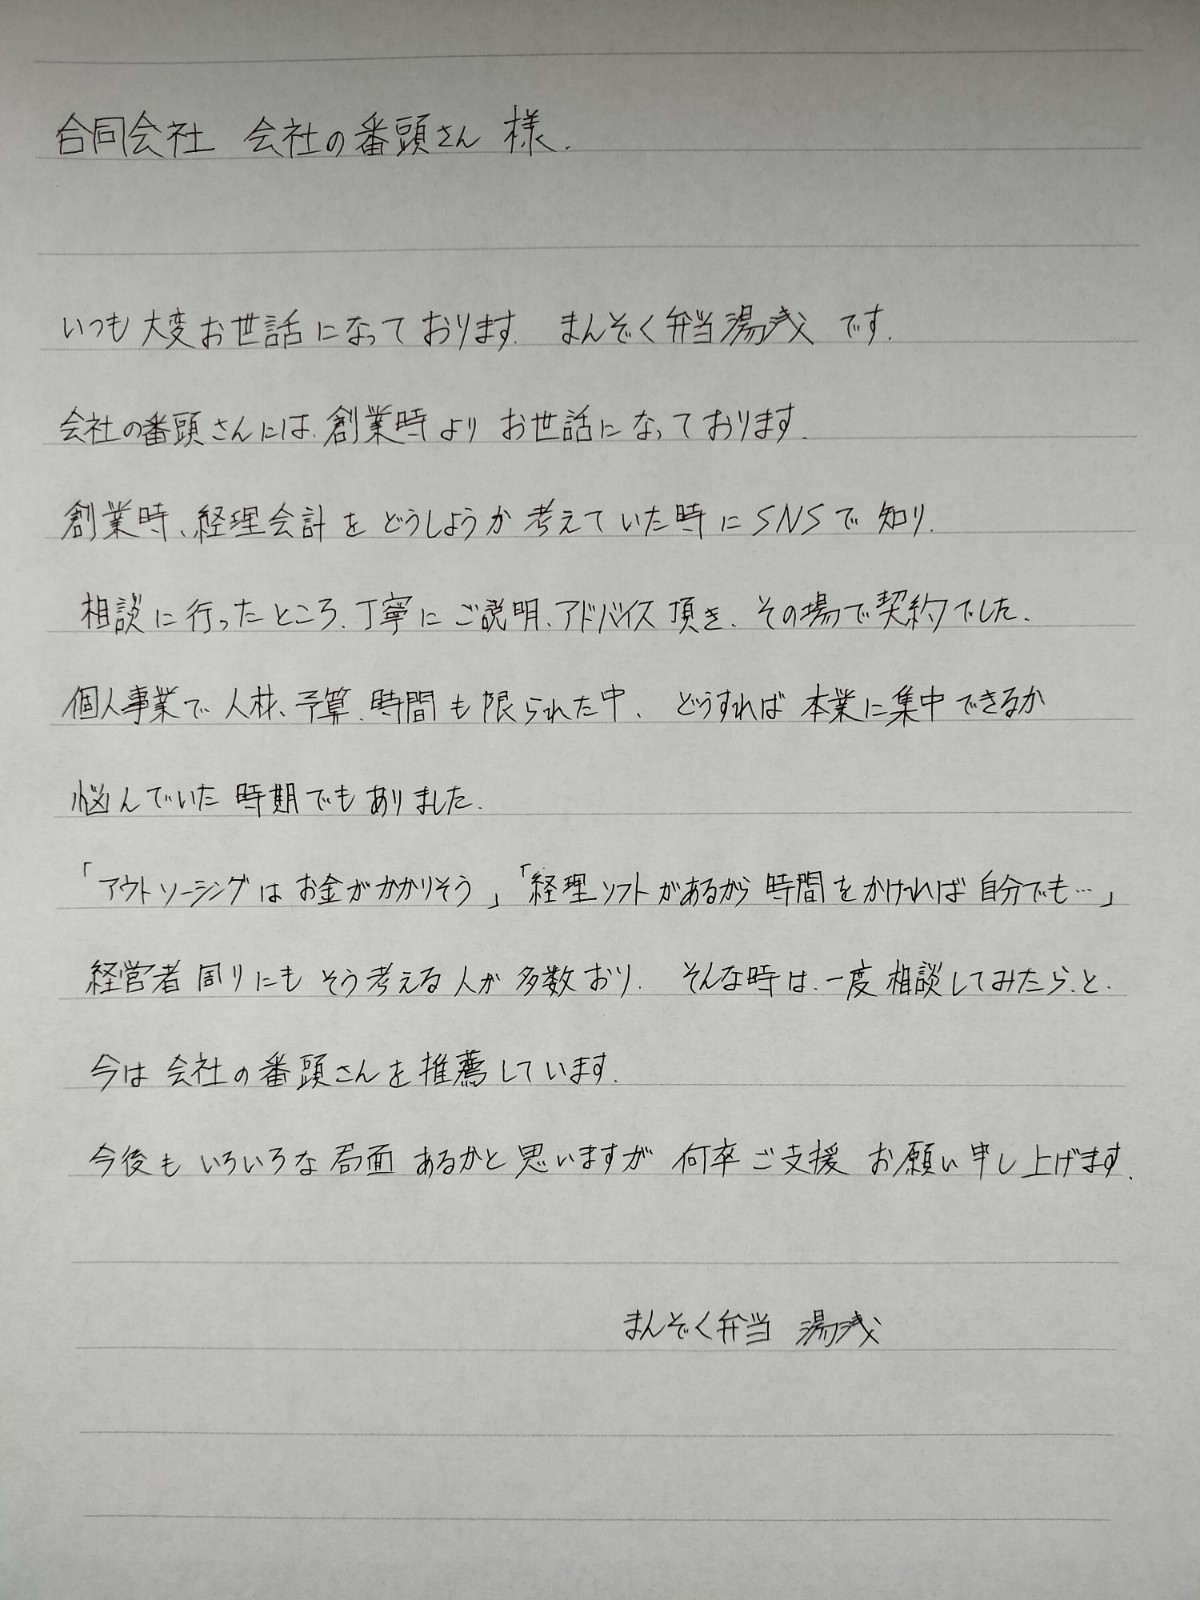 合同会社 会社の番頭さん 様.
いつも大変お世話になっております. まんぞく弁当湯浅です.
会社の番頭さんには、創業時よりお世話になっております.
創業時、経理会計をどうしようか考えていた時にSNSで知り.
相談に行ったところ、丁寧にご説明、アドバイス頂き、その場で契約でした.
個人事業で人材、予算、時間も限られた中、どうすれば本業に集中できるか
悩んでいた時期でもありました.
「アウトソーシングはお金がかかりそう」「経理ソフトがあるから時間をかければ自分でも…」
経営者周りにもそう考える人が多数おり、そんな時は、一度相談してみたら、と.
今は会社の番頭さんを推薦しています.
今後もいろいろな局面あるかと思いますが何卒ご支援お願い申し上げます.
まんぞく弁当 湯浅